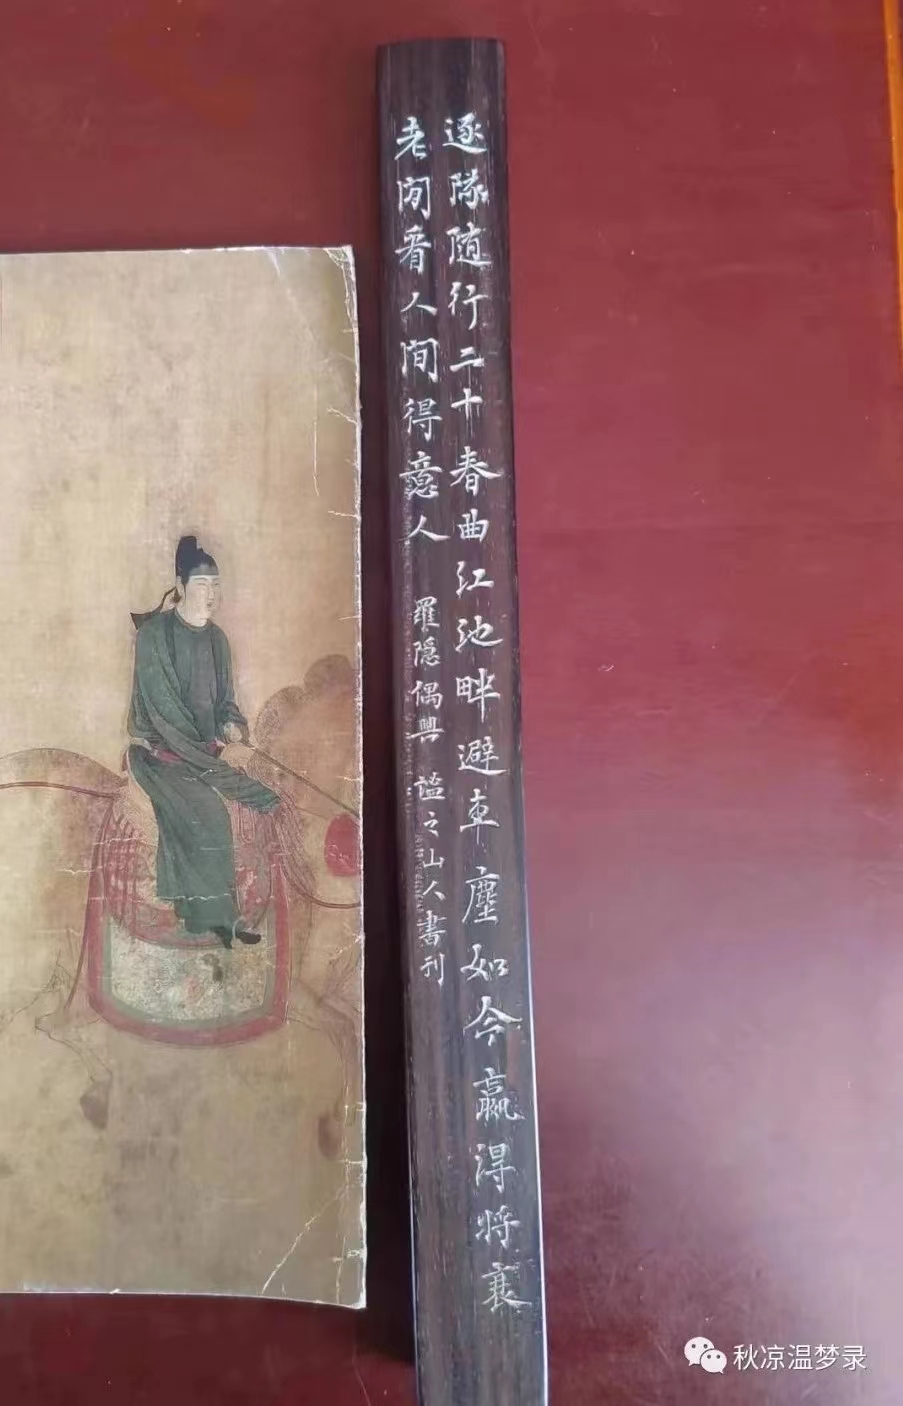 逐隊随行二十春曲江池畔避車塵如今贏得将衰
老閒看人間得意人 羅隱偶興 谧之山人書刊
秋凉温梦录